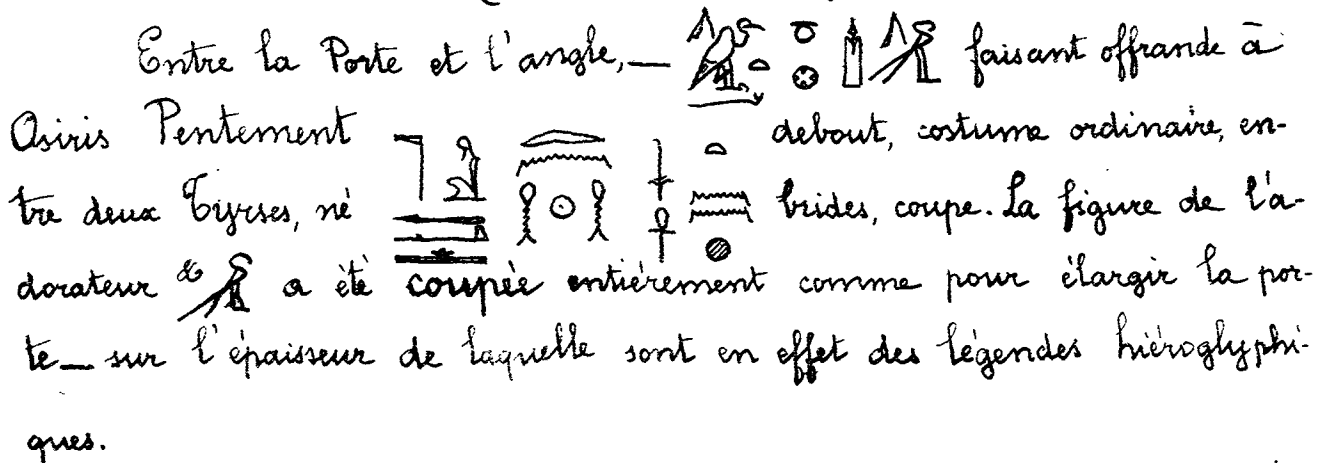 Entre la Porte et l'angle,— faisant offrande à
Osiris Pentement debout, costume ordinaire, en-
tre deux Tyrses, né brides, coupe. La figure de l'a-
dorateur & a été coupée entiérement comme pour élargir la por-
te— sur l'épaisseur de laquelle sont en effet des légendes hiéroglyphi-
ques.